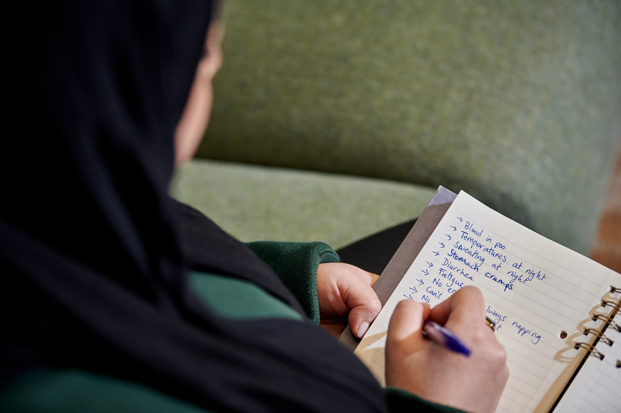 → Blood in poo
→ Temperatures at night
→ Sweating at night
→ Stomach cramps
→ Diarrhea
→ Fatigue
→ No
→ napping
→ No